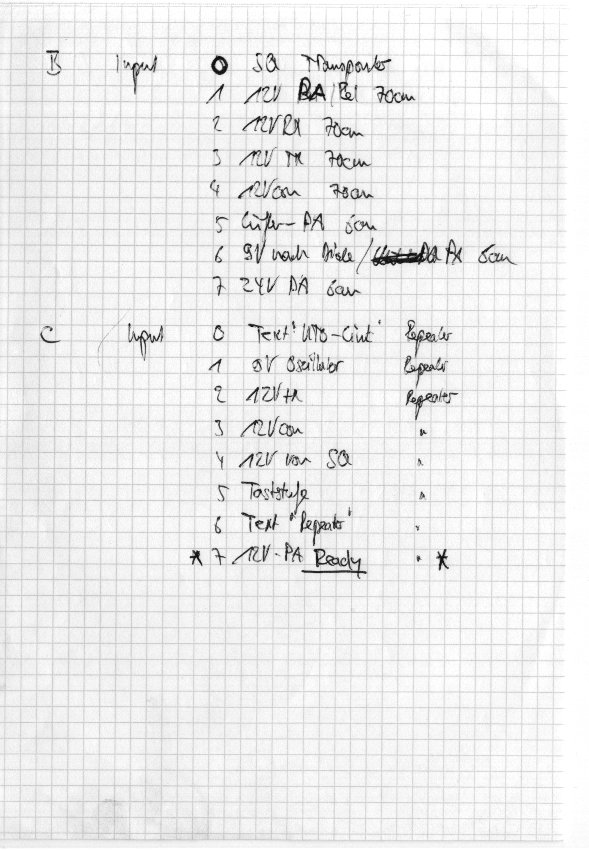 B Input 0 SQ Transponder
1 12V PA/Rel 70cm
2 12V RX 70cm
3 12V TX 70cm
4 12V con 70cm
5 Lüfter-PA 6cm
6 9V nach Diode / PA 6cm
7 24V PA 6cm
C Input 0 Text " " Repeater
1 9V Oszillator Repeater
2 12V tx Repeater
3 12V con "
4 12V von SQ "
5 Taststufe "
6 Text "Repeater" "
* 7 12V-PA Ready " *